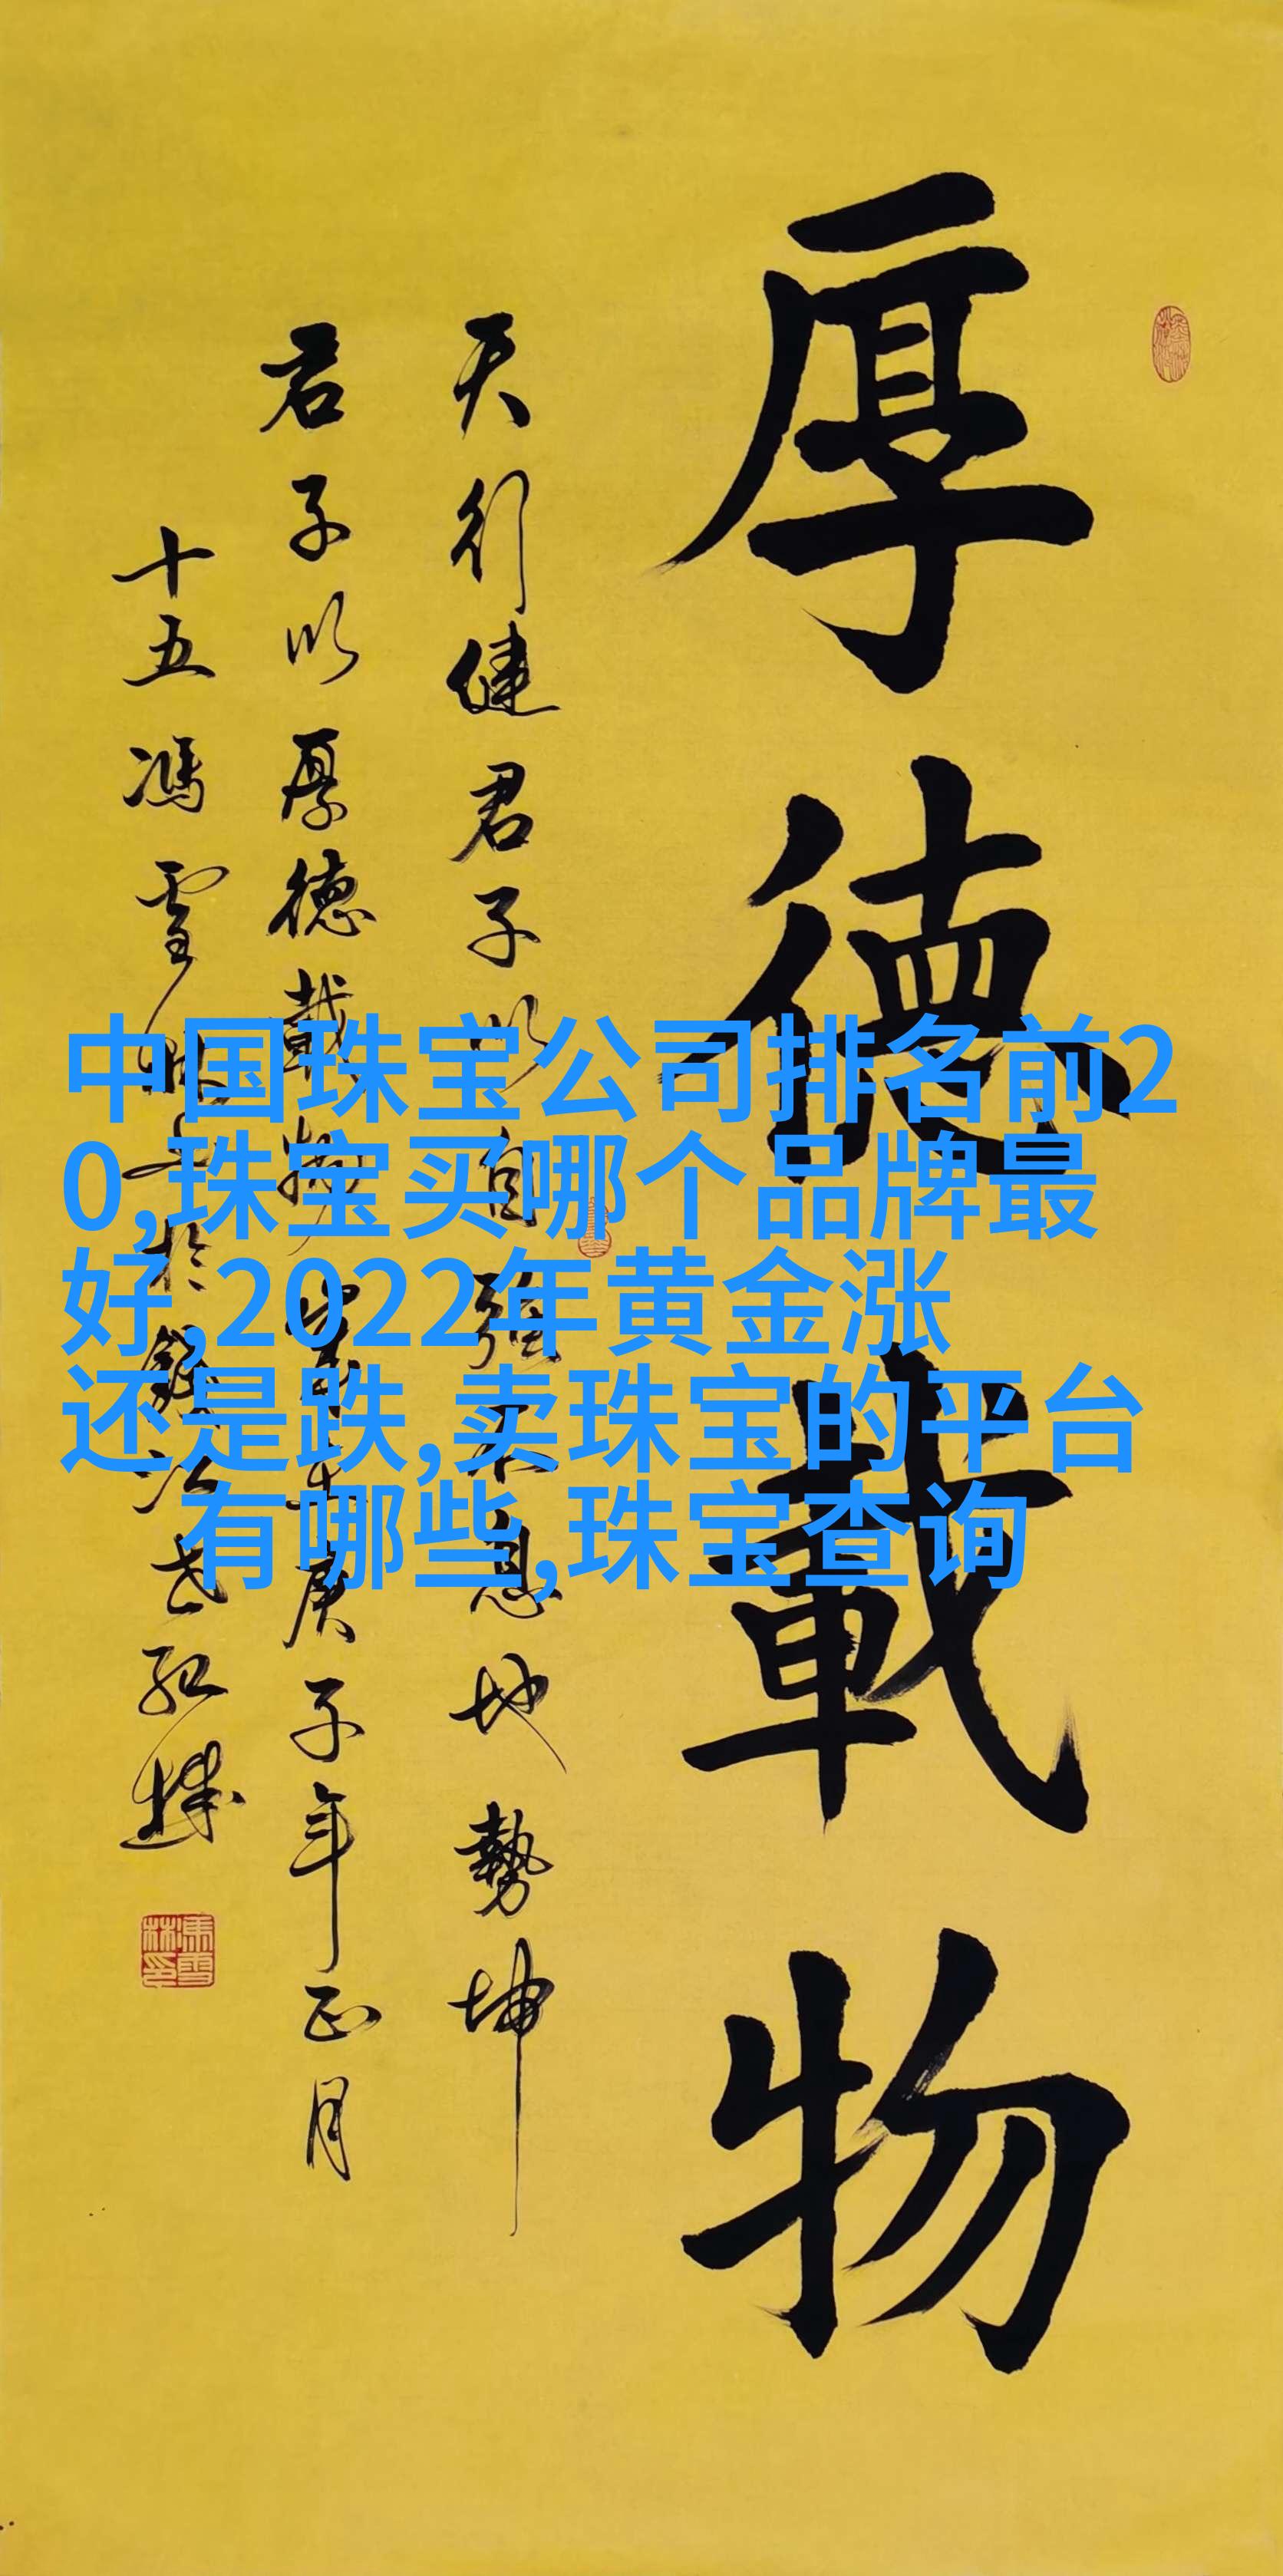 厚德載物
天行健君子以自強不息地勢坤
君子以厚德載物
庚子年正月
十五馮雪林
中国珠宝公司排名前2
0,珠宝买哪个品牌最
好,2022年黄金涨
还是跌,卖珠宝的平台
有哪些,珠宝查询